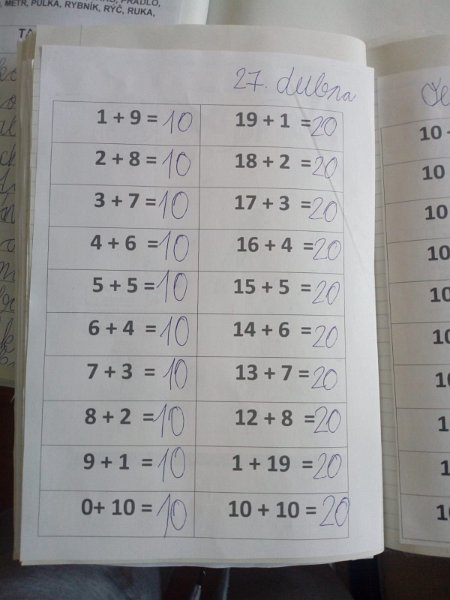 METR, PULKA, RYBNÍK, RYČ, RUKA,
27. dubna
1 + 9 = 10 19 + 1 = 20
2 + 8 = 10 18 + 2 = 20
3 + 7 = 10 17 + 3 = 20
4 + 6 = 10 16 + 4 = 20
5 + 5 = 10 15 + 5 = 20
6 + 4 = 10 14 + 6 = 20
7 + 3 = 10 13 + 7 = 20
8 + 2 = 10 12 + 8 = 20
9 + 1 = 10 1 + 19 = 20
0+ 10 = 10 10 + 10 = 20
10
10
10
10
10
10